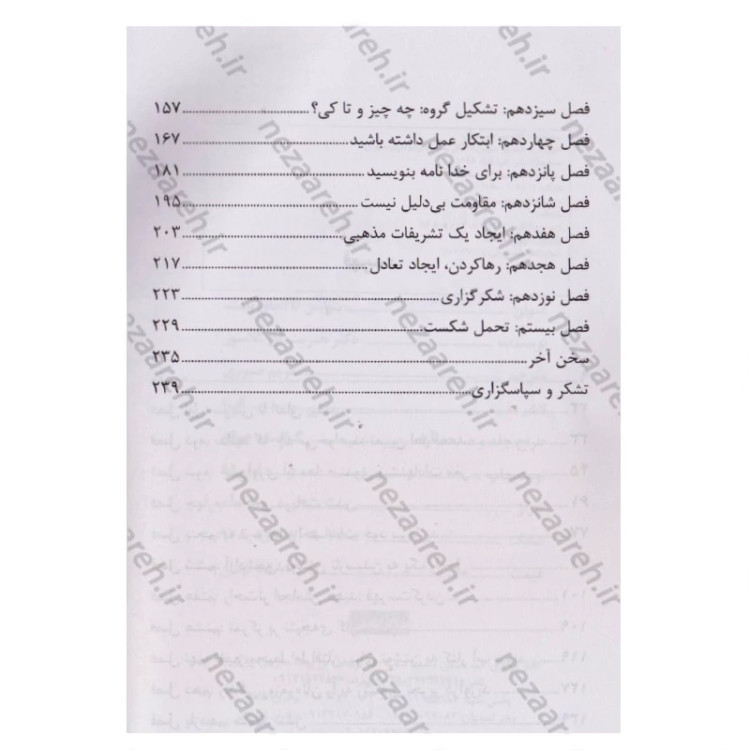 فصل سیزدهم: تشکیل گروه: چه چیز و تا کی؟ ۱۵۷
فصل چهاردهم: ابتکار عمل داشته باشید ۱۶۷
فصل پانزدهم: برای خدا نامه بنویسید ۱۸۱
فصل شانزدهم: مقاومت بی‌دلیل نیست ۱۹۵
فصل هفدهم: ایجاد یک تشریفات مذهبی ۲۰۳
فصل هجدهم: رهاکردن، ایجاد تعادل ۲۱۷
فصل نوزدهم: شکرگزاری ۲۲۳
فصل بیستم: تحمل شکست ۲۲۹
سخن آخر ۲۳۵
تشکر و سپاسگزاری ۲۳۹
nezaareh.ir